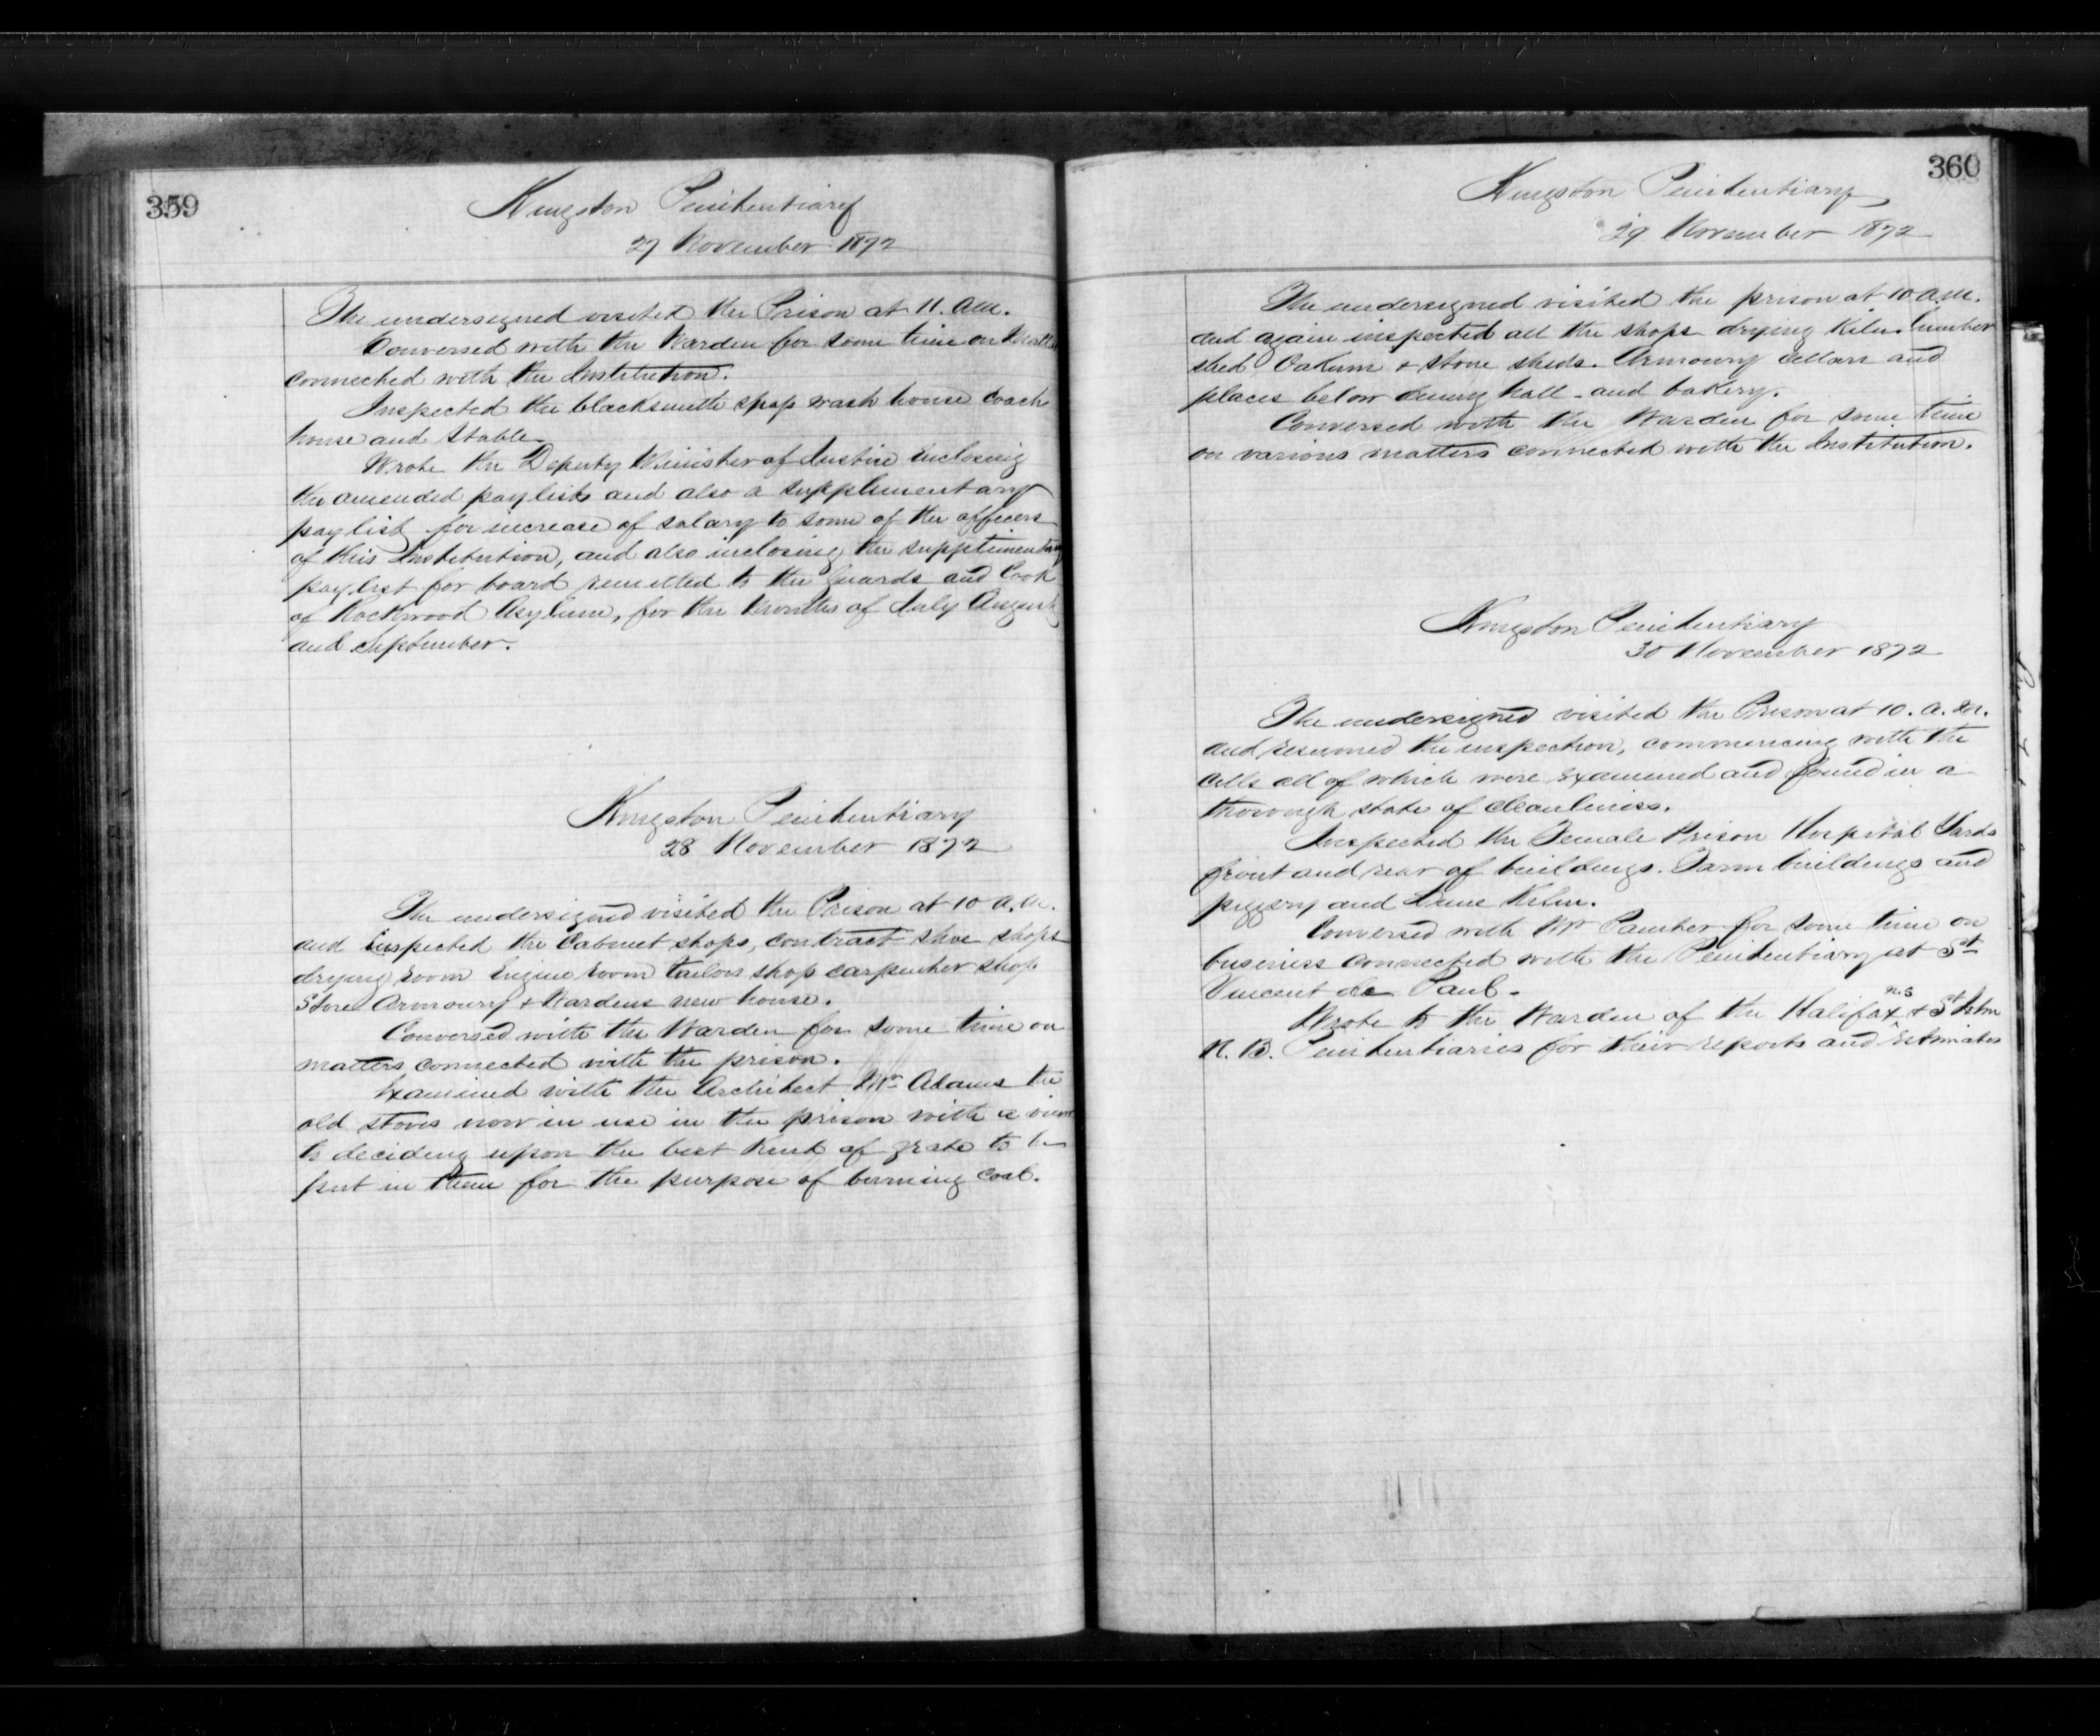 359
Kingston Penitentiary
27 November 1872
The undersigned visited the Prison at 11. a.m.
Conversed with the Warden for some time on matters
connected with the Institution.
Inspected the blacksmith shop wash house coach
house and stable.
Wrote the Deputy Minister of Justice enclosing
the amended pay lists and also a supplimentary
pay list for increase of salary to some of the officers
of this Institution, and also inclosing the supplimentary
pay list for board remitted to the guards and Cook
of Rockwood Asylum, for the months of July August
and September.
Kingston Penitentiary
28 November 1872
The undersigned visited the Prison at 10 a.m.
and inspected the Cabinet shops, contract shoe shops
drying room Engine room tailors shop carpenter shop
Store Armoury & Wardens new house.
Conversed with the Warden for some time on
matters connected with the prison.
Examined with the Architect Mr Adams the
old stoves now in use in the prison with a view
to deciding upon the best kind of grate to be
put in them for the purpose of burning coal.
360
Kingston Penitentiary
29 November 1872
The undersigned visited the prison at 10 a.m.
and again inspected all the shops drying Kiln. Lumber
shed Oakum & stone sheds. Armoury cellars and
places below dining hall - and bakery.
Conversed with the Warden for some time
on various matters connected with the Institution.
Kingston Penitentiary
30 November 1872
The undersigned visited the Prison at 10. a. m.
and resumed the inspection, commencing with the
cells all of which were examined and found in a
thorough state of cleanliness.
Inspected the Female Prison Hospital Yards
front and rear of buildings. Farm buildings and
piggery and Lime Kiln.
Conversed with Mr Painter for some time on
business connected with the Penitentiary at St
Vincent de Paul.
Wrote to the Warden of the Halifax N.S & St John
N. B. Penitentiaries for their reports and Estimates